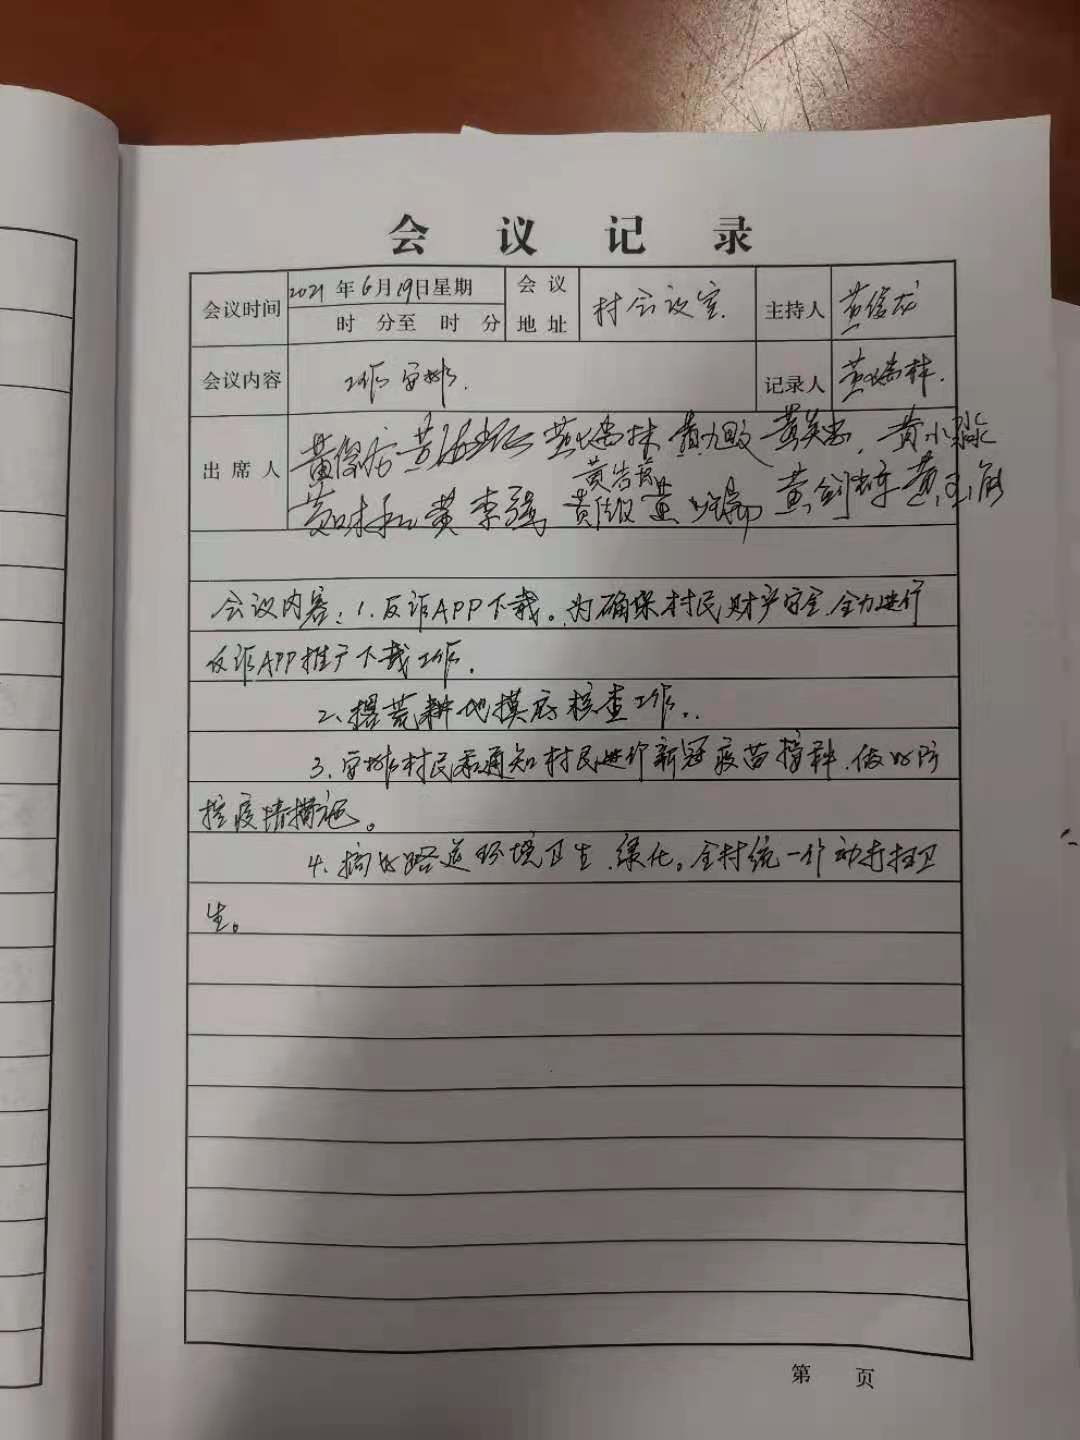 会议记录
会议时间 2021年6月19日星期 会议 村会议室 主持人 黄俊龙
时 分至 时 分 地址
会议内容 工作安排. 记录人 黄瑞林.
出席人 黄俊宏 黄 黄瑞林 黄旭毅 黄美忠, 黄小
黄浩
黄 黄李强 黄 黄剑 黄
会议内容：1.反诈APP下载。为确保村民财产安全,全力进行
反诈APP推广下载工作.
2、撂荒耕地摸底核查工作.
3、安排村民和通知村民进行新冠疫苗接种.做好防
控疫情措施。
4、搞好路道环境卫生、绿化。全村统一行动打扫卫
生。
第 页